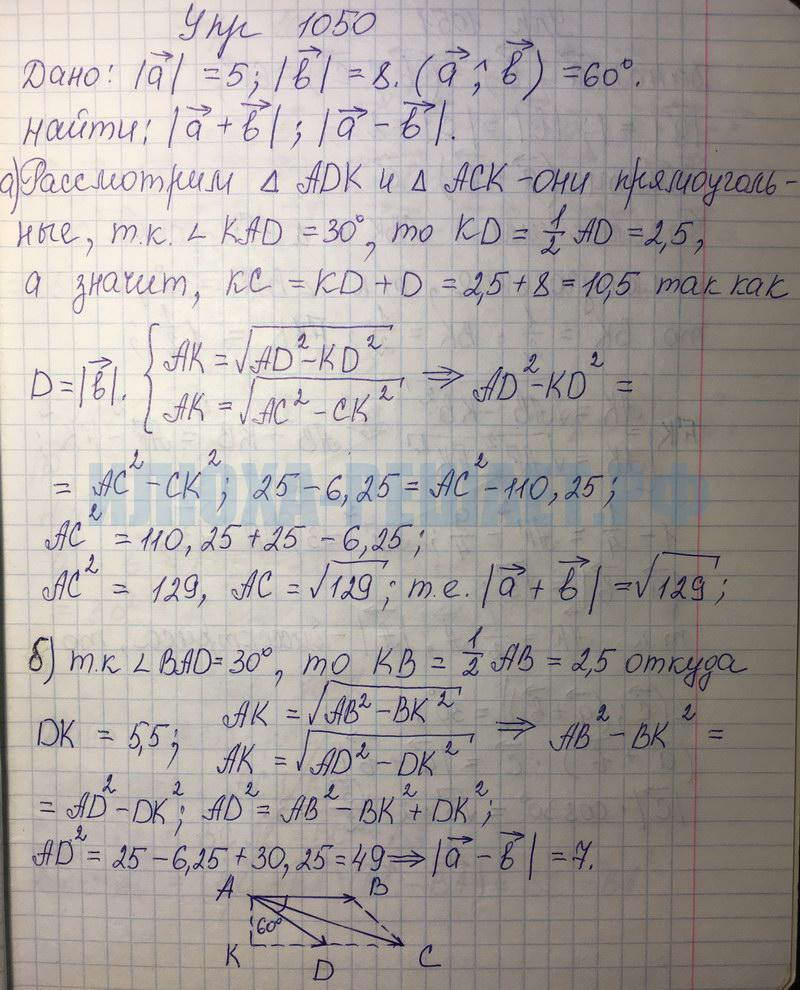 Упр 1050
Дано: |a⃗| = 5; |b⃗| = 8. (a⃗; b⃗) = 60°.
найти: |a⃗ + b⃗|; |a⃗ - b⃗|.
а) Рассмотрим △ ADK и △ ACK - они прямоуголь-
ные, т.к. ∠ KAD = 30°, то KD = 1/2 AD = 2,5,
а значит, KC = KD + D = 2,5 + 8 = 10,5 так как
D = |b⃗|. { AK = √(AD² - KD²)
AK = √(AC² - CK²) ⇒ AD² - KD² =
= AC² - CK²; 25 - 6,25 = AC² - 110,25;
ИЛЮХА-РЕШАЕТ.РФ
AC² = 110,25 + 25 - 6,25;
AC² = 129, AC = √129; т.е. |a⃗ + b⃗| = √129;
б) т.к ∠ BAD = 30°, то KB = 1/2 AB = 2,5 откуда
DK = 5,5; AK = √(AB² - BK²)
AK = √(AD² - DK²) ⇒ AB² - BK² =
= AD² - DK²; AD² = AB² - BK² + DK²;
AD² = 25 - 6,25 + 30,25 = 49 ⇒ |a⃗ - b⃗| = 7.
A B
60°
K D C